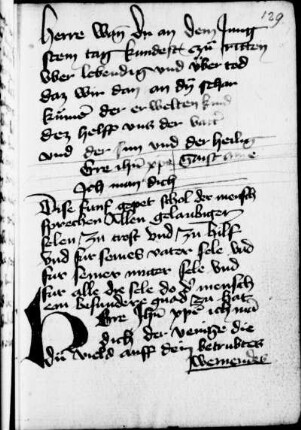 129
herre wan du an dem Jung
stem tag kundest zu richten
vber lebendig vnd vber tod
daz wir dan an dyn schar
kumen der erwelten kind
dez helff vns der vatter
vnd der sun vnd der heilig
Ich man dich
Dise funf gepet schol der mensch
sprechen Allen gelaubigen
selen zu trost vnd zu hilf
vnd fur seines vater sele vnd
fur seiner muter sele vnd
fur alle die sele do der mensch
ein besundere gnad zu hat
Herre Jhu xpe ich man
dich der venige die
du vield auff dein betrubtes
wemendes